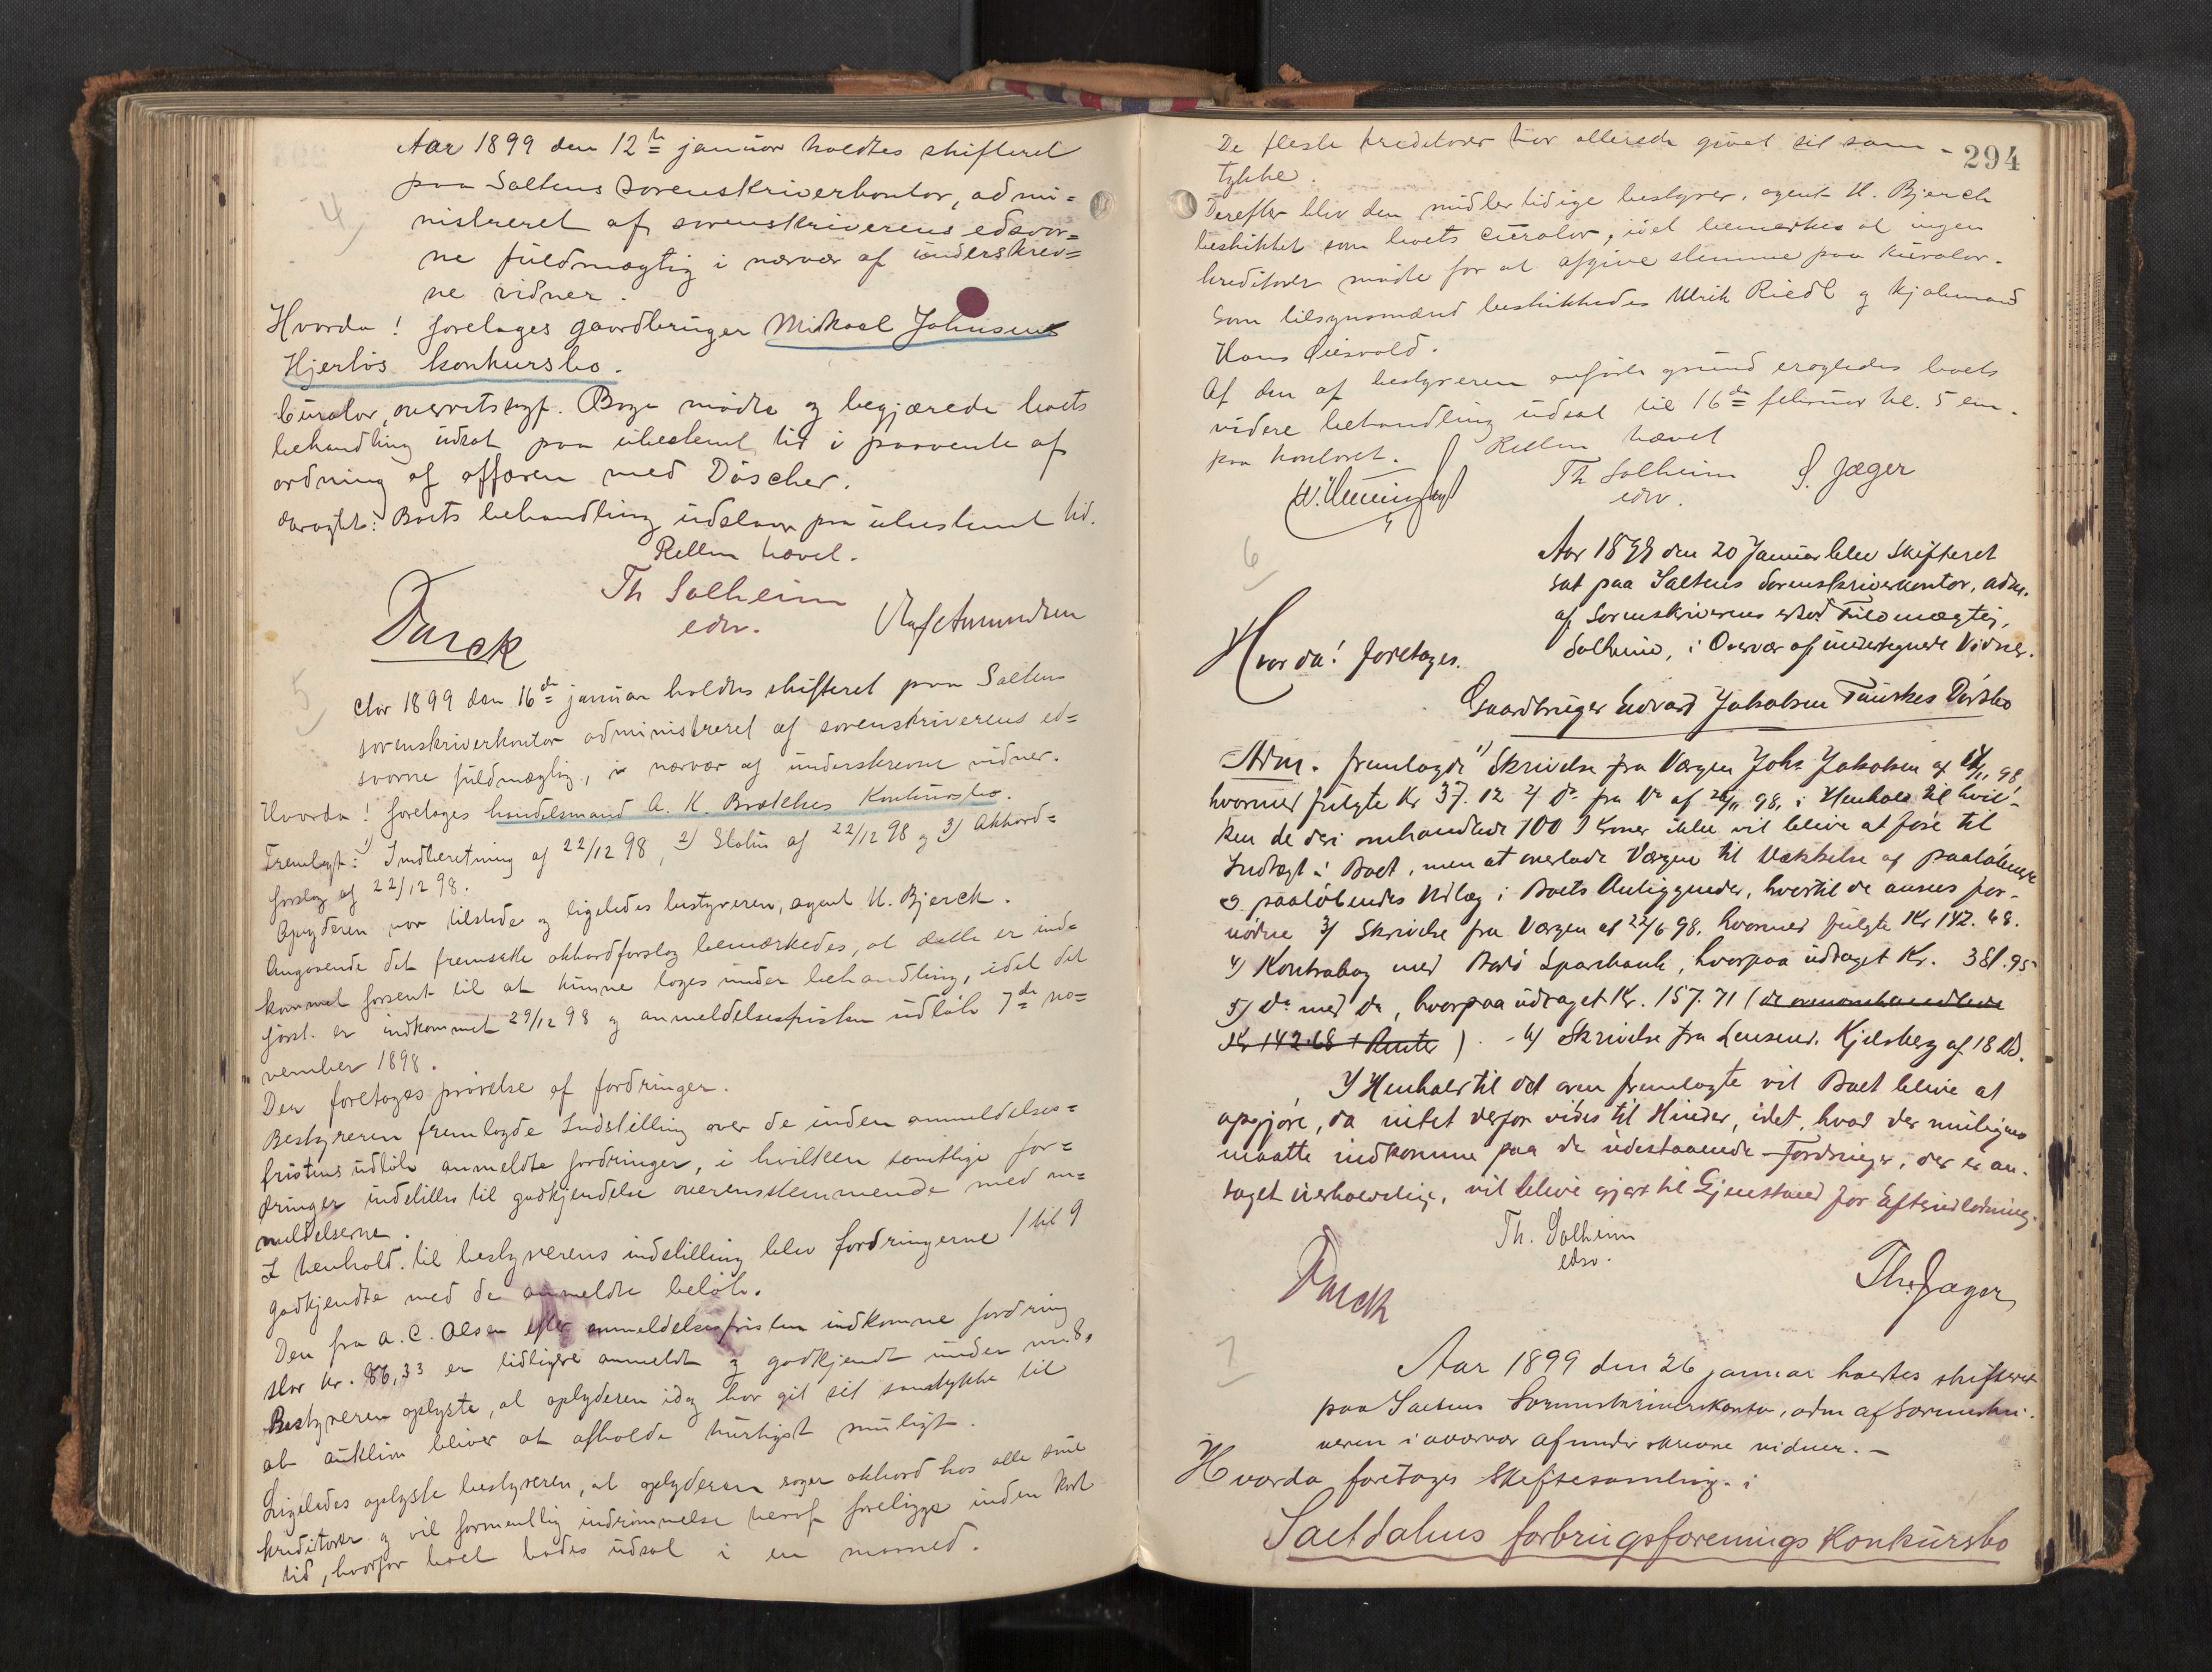 Aar 1899 den 12te januar holdtes skifteret
paa Saltens sorenskriverkontor, admi=
4)
nistreret af sorenskriverens edsvor=
ne fuldmægtig i nærvær af underskrev=
ne vidner.
Hvorda! foretages gaardbruger Mikael Johnsens
Hjertøs konkursbo.
Curator, overretssagf. Boye mødte og begjærede boets
behandling udsat paa ubestemt tid i paavente af
ordning af affæren med Döscher.
Boets behandling udslaaes paa ubestemt tid.
Retten hævet.
Th Solheim
edsv.
Olaf Amundsen
Darck
5)
Aar 1899 den 16de januar holdtes skifteret paa Saltens
sorenskriverkontor administreret af sorenskriverens ed=
svorne fuldmægtig, i nærvær af underskrevne vidner.
Hvorda! foretages handelsmand A. K. Brækkes Konkursbo.
Fremlagt: 1) Indberetning af 22/12 98, 2) Status af 22/12 98 og 3) Akkord=
forslag af 22/12 98.
Opbyderen var tilstede og ligeledes bestyreren, agent H. Bjerck.
Angaaende det fremsatte akkordforslag bemærkedes, at dette er ind=
kommet forsent til at kunne tages under behandling, idet det
først er indkommet 29/12 98 og anmeldelsesfristen udløb 7de no=
vember 1898.
Der foretages prøvelse af fordringer.
Bestyreren fremlagde Indstilling over de inden anmeldelses=
fristens udløb anmeldte fordringer, i hvilken samtlige for=
dringer indstilles til godkjendelse overensstemmende med an=
meldelserne.
I henhold til bestyrerens indstilling blev fordringerne 1 til 9
godkjendte med de anmeldte beløb.
Den fra A. C. Olsen efter anmeldelsesfristen indkomne fordring
stor kr. 86,33 er tidligere anmeldt og godkjendt under no. 8.
Bestyreren oplyste, at opbyderen idag har git sit samtykke til
at auktion bliver at afholde hurtigst muligt.
Ligeledes oplyste bestyreren, at opbyderen søger akkord hos alle sine
kreditorer og vil formentlig indrømmelse herof foreligge inden kort
tid, hvorfor boet bedes udsat i en maaned.
294
De fleste kreditorer har allerede givet sit sam-
tykke.
Derefter blev den midlertidige bestyrer, agent H. Bjerck
beskikket som boets curator, idet bemærkes at ingen
kreditorer mødte for at afgive stemme paa kurator.
Som tilsynsmænd beskikkedes Ulrik Riedl og kjøbmand
Hans
Af den af bestyreren anførte grund eragtedes boets
videre behandling udsat til 16de februar kl. 5 em.
paa kontoret. Retten hævet
Th Solheim
edsv.
S. Jæger
6)
Aar 1899 den 20 Januar blev Skifteret
sat paa Saltens Sorenskriverkontor, adm.
af Sorenskriverens edsv. Fuldmægtig,
Solheim, i Overvær af undertegnede Vidner.
Hvorda! foretages.
Gaardbruger Edvard Jakobsen Dødsbo
Adm. fremlagde 1) Skrivelse fra Værgen Johs Jakobsen af 98
hvormed fulgte Kr 37.12 2) Do fra Do af 98, i Henhold til hvil-
ken de deri omhandlede 100 Kroner ikke vil blive at føre til
Indtægt i Boet, men at overlade Værgen til Dækkelse af paaløbne
og paaløbendes Udlæg i Boets Anliggender, hvortil de ansees for-
nødne 3) Skrivelse fra Værgen af 22/6 98, hvormed fulgte Kr 142.68.
4) Kontrabog med Bodø Sparebank, hvorpaa udtaget Kr. 381.95
5) Do med Do, hvorpaa udtaget Kr. 157.71 (de ovenomhandlede
Kr 142.68 + Renter). - 6) Skrivelse fra Lensmd. Kjelsberg af 18 ds.
I Henhold til det oven fremlagte vil Boet blive at
opgjøre, da intet derfor vides til Hinder, idet, hvad der muligens
maatte indkomme paa de udestaaende Fordringer, der er an-
taget uerholdelige, vil blive gjort til Gjenstand for Efterudlodning.
Th. Solheim
edsv.
Darck
Th. Jæger
7)
Aar 1899 den 26 januar holdtes skifteret
paa Saltens Sorenskriverkontor, adm af Sorenskri-
veren i overvær af underskrevne vidner. -
Hvorda foretages Skiftesamling i
Saltdalens forbrugsforenings Konkursbo